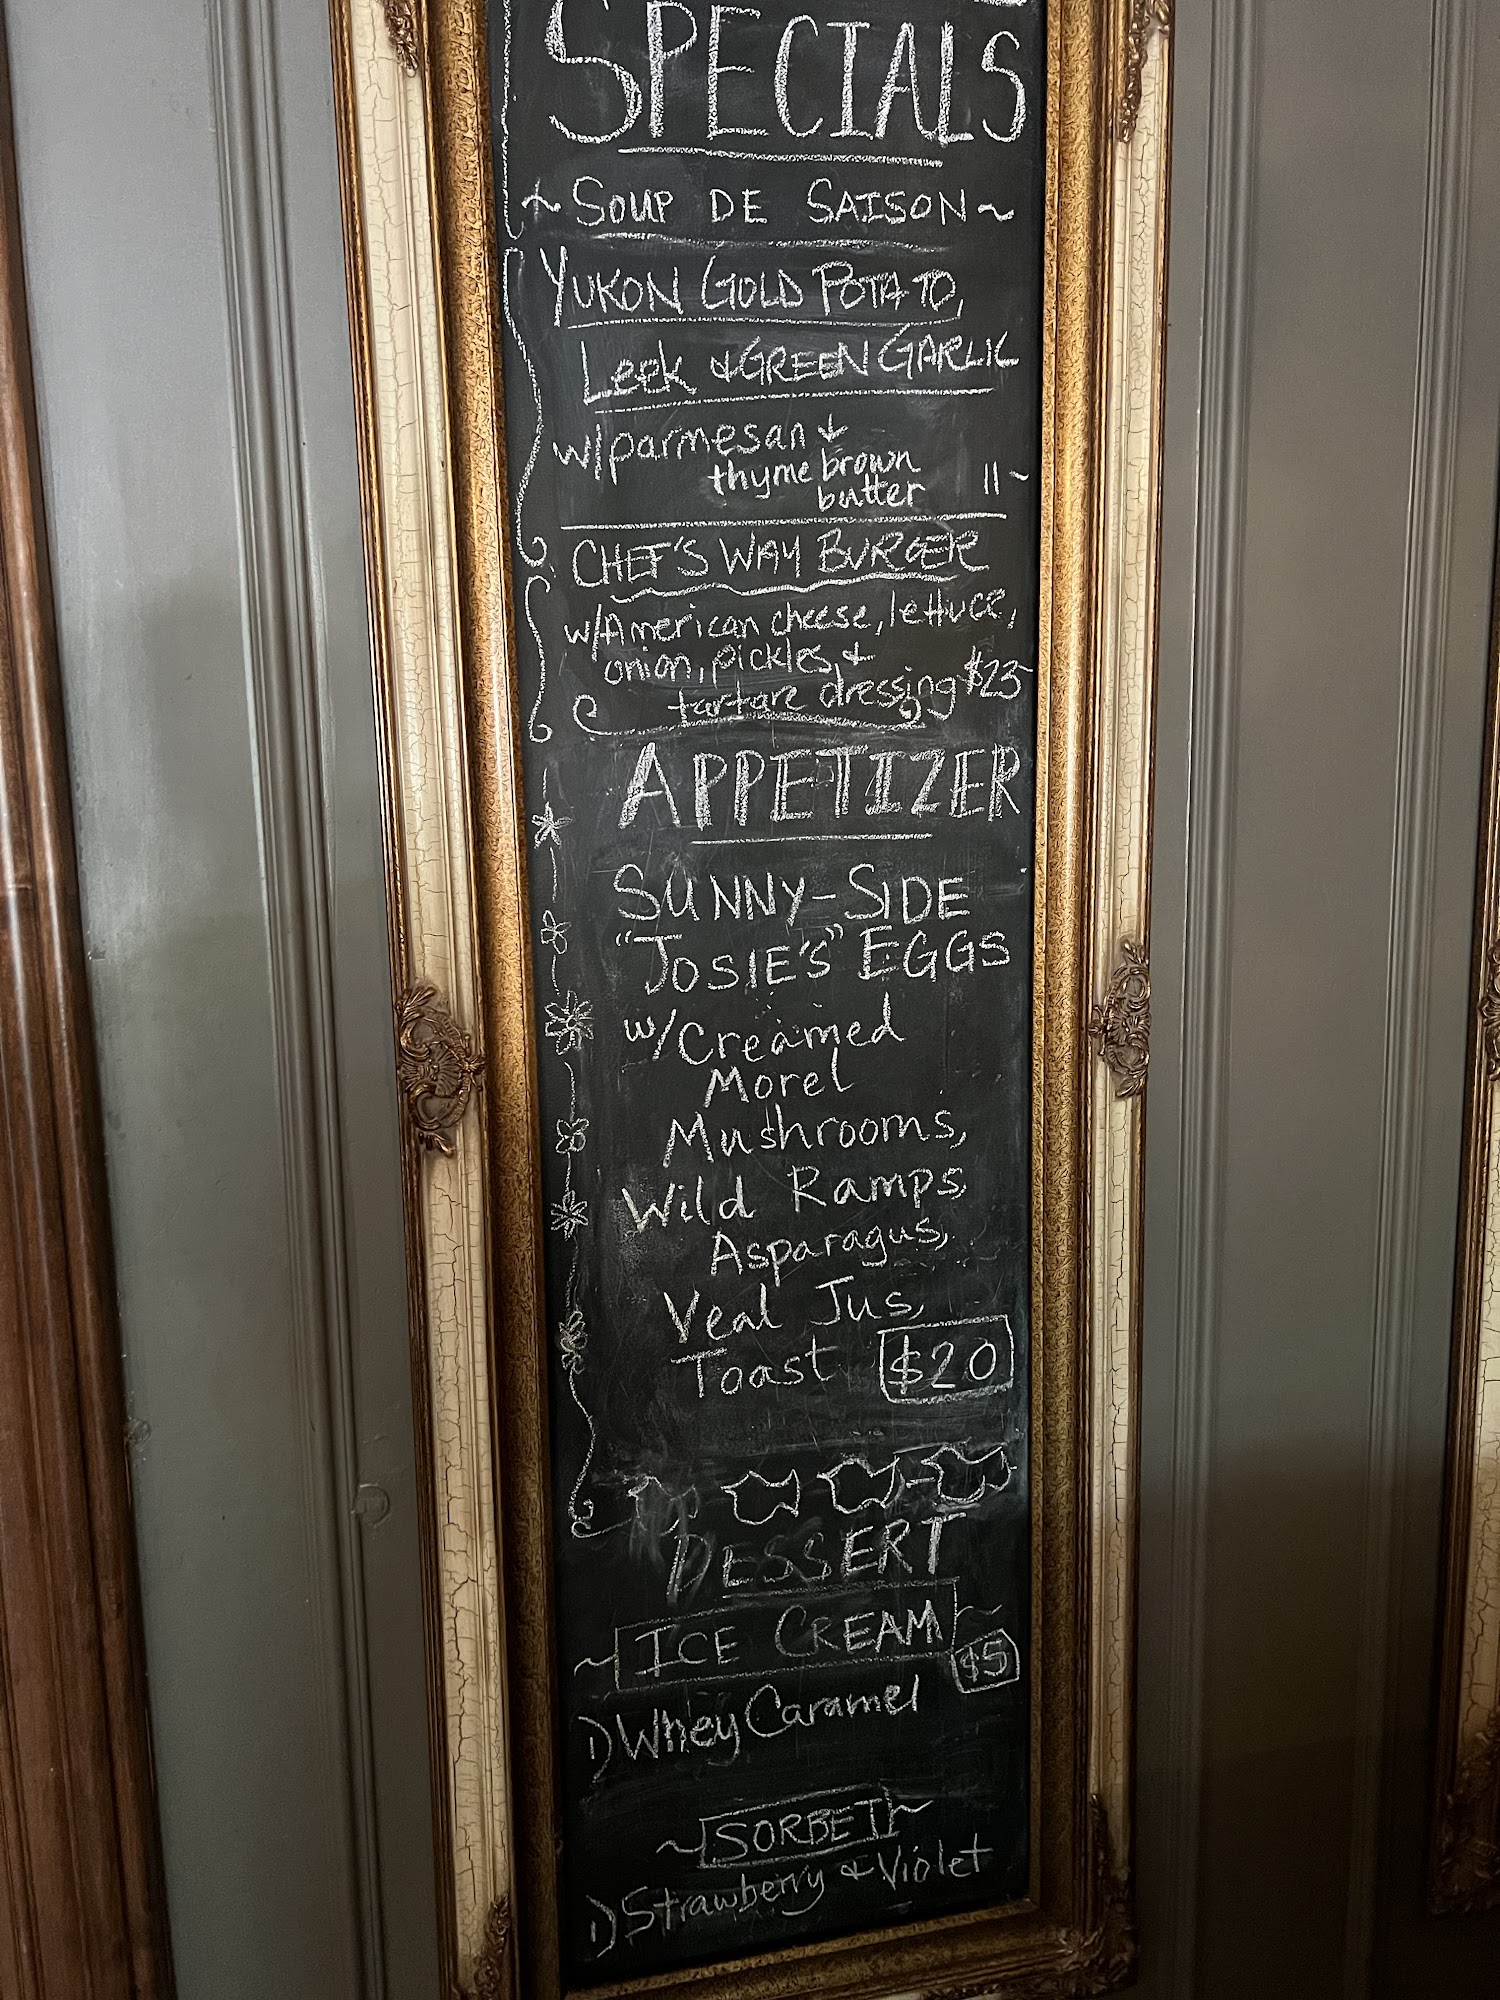 SPECIALS
~ SOUP DE SAISON ~
YUKON GOLD POTATO,
Leek & GREEN GARLIC
w/parmesan &
thyme brown
butter 11~
CHEF'S WAY BURGER
w/American cheese, lettuce,
onion, pickles, &
tartare dressing $23~
APPETIZER
SUNNY-SIDE
"JOSIE'S" EGGS
w/Creamed
Morel
Mushrooms,
Wild Ramps,
Asparagus,
Veal Jus,
Toast $20
DESSERT
~ ICE CREAM ~
$5
1) Whey Caramel
~ SORBET ~
1) Strawberry & Violet